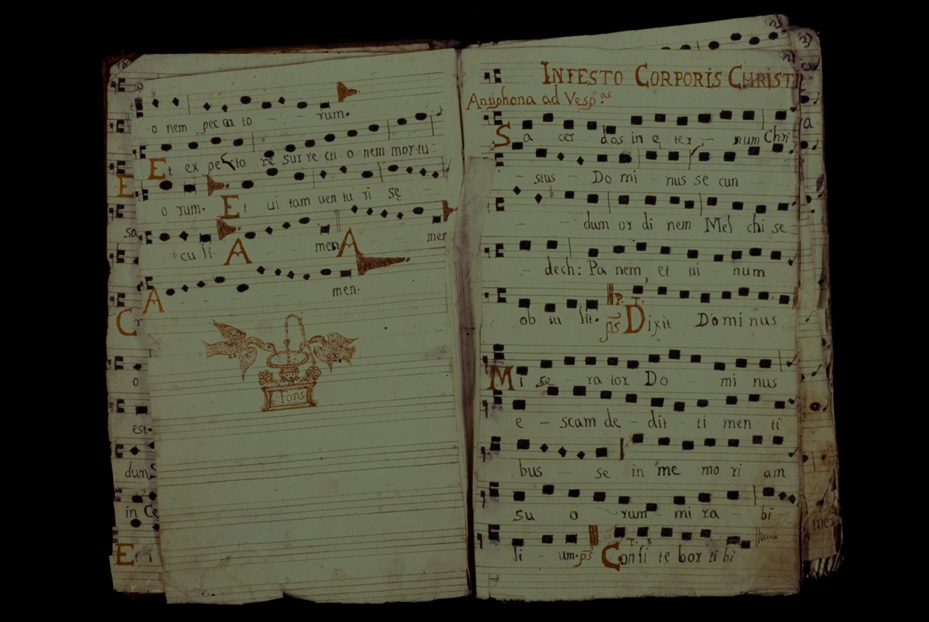 o nem pec ca to rum.
Et ex pecto re sur re cti o nem mor tu
o rum. Et ui tam uen tu ri sę
cu li. A men A men
A men.
Fons
IN FESTO CORPORIS CHRISTI
Antiphona ad Vesp.as
Sa cer dos in ę ter – num Chri
stus Do mi – nus se cun
dum or di nem Mel chi se
dech: Pa nem, et ui num
ob tu lit. P. T. ps Dixit Dominus
Mi se ra tor Do mi nus
e – scam de – dit ti men ti
bus – se in me mo ri am
su o rum mi ra bi
li um. ps Confi te bor ti bi